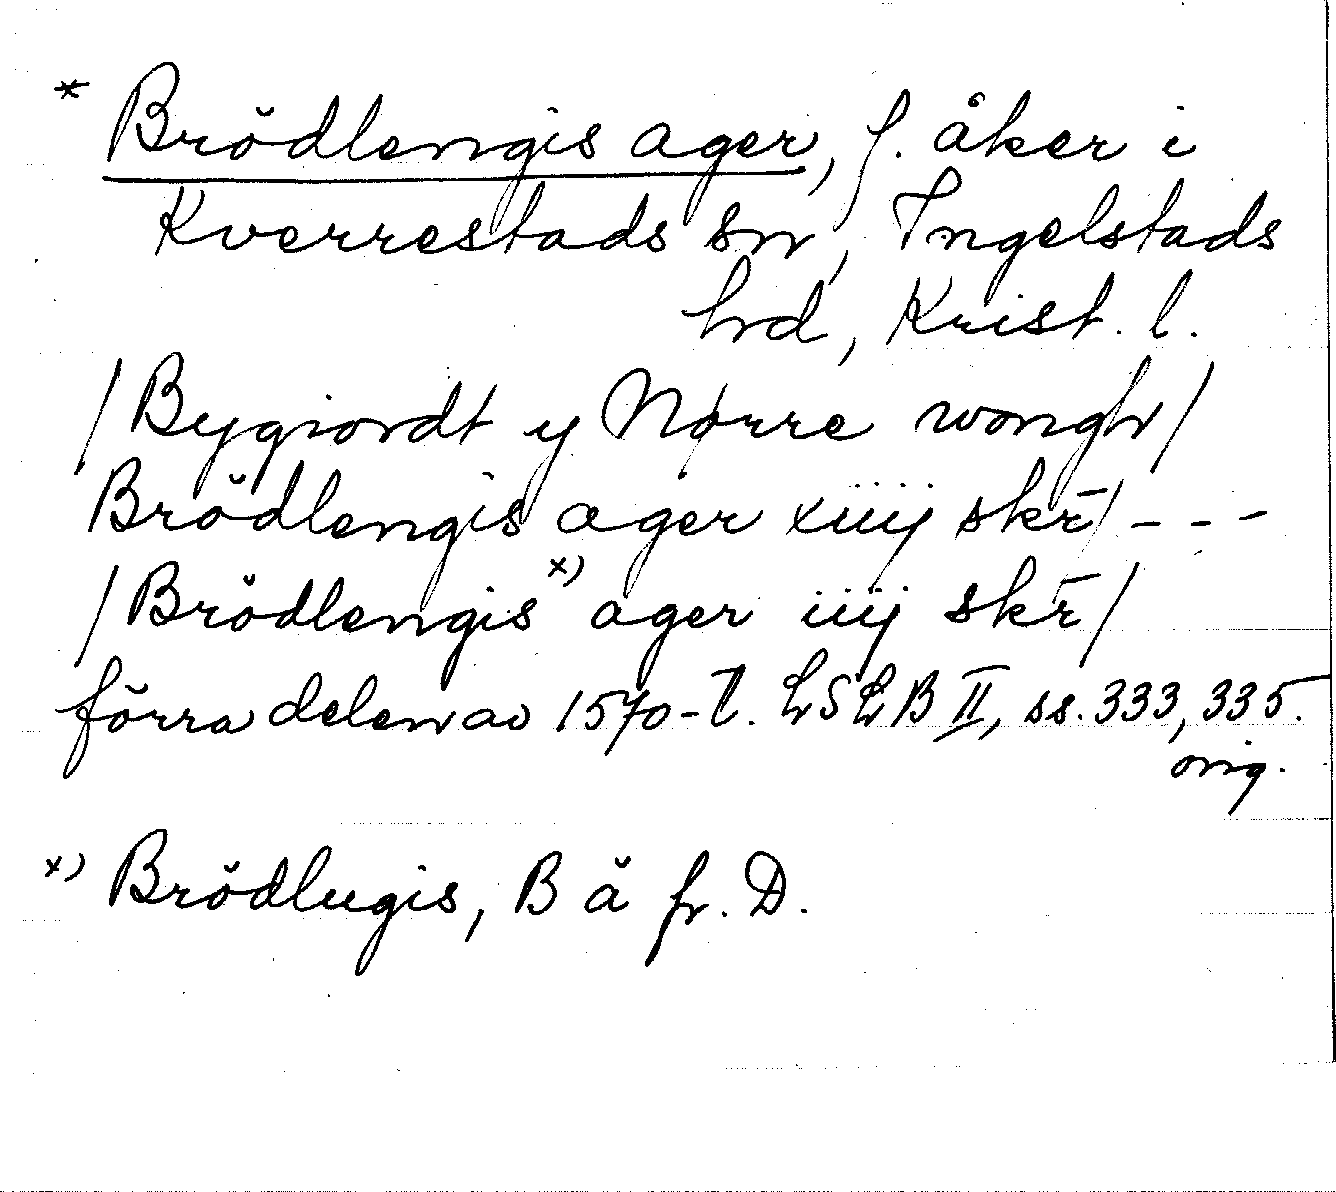 * Brödlengis ager, f. åker i
Kverrestads sn, Ingelstads
hrd, Krist. l.
/Bygiordt y Nørre wongh/
Brödlengis ager xiiij skr̄/ - - -
/Brödlengis x) ager iiij skr̄/
förra delen av 1570-t. LSLB II, ss. 333, 335.
orig.
x) Brödlugis, B å fr. D.